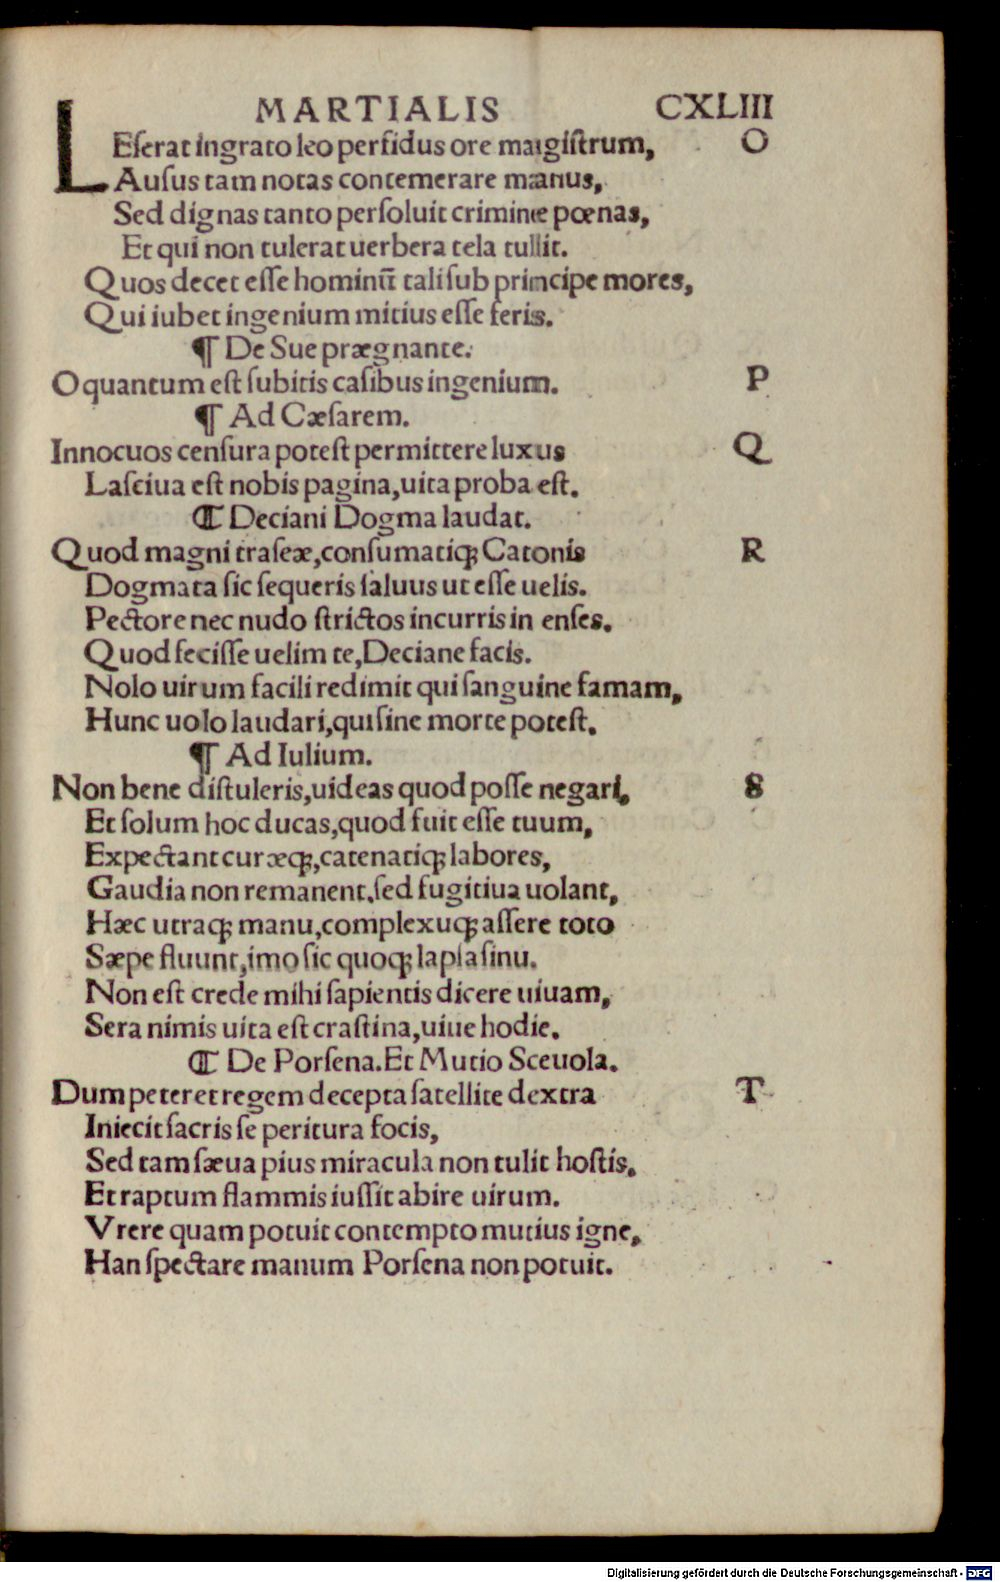 MARTIALIS CXLIII
LEſerat ingrato leo perfidus ore magiſtrum, O
Auſus tam notas contemerare manus,
Sed dignas tanto perſoluit crimine pœnas,
Et qui non tulerat uerbera tela tullit.
Quos decet eſſe hominū tali ſub principe mores,
Qui iubet ingenium mitius eſſe feris.
¶ De Sue prægnante.
O quantum eſt ſubitis caſibus ingenium. P
¶ Ad Cæſarem.
Innocuos cenſura poteſt permittere luxus Q
Laſciua eſt nobis pagina,uita proba eſt.
¶ Deciani Dogma laudat.
Quod magni traſeæ,conſumatiq; Catonis R
Dogmata ſic ſequeris ſaluus ut eſſe uelis.
Pectore nec nudo ſtrictos incurris in enſes.
Quod feciſſe uelim te,Deciane facis.
Nolo uirum facili redimit qui ſanguine famam,
Hunc uolo laudari,qui ſine morte poteſt.
¶ Ad Iulium.
Non bene diſtuleris,uideas quod poſſe negari, S
Et ſolum hoc ducas,quod fuit eſſe tuum,
Expectant curæq;,catenatiq; labores,
Gaudia non remanent.ſed fugitiua uolant,
Hæc utraq; manu,complexuq; aſſere toto
Sæpe fluunt,imo ſic quoq; lapſa ſinu.
Non eſt crede mihi ſapientis dicere uiuam,
Sera nimis uita eſt craſtina,uiue hodie.
¶ De Porſena.Et Mutio Sceuola.
Dum peteret regem decepta ſatellite dextra T
Iniecit ſacris ſe peritura focis,
Sed tam ſæua pius miracula non tulit hoſtis,
Et raptum flammis iuſſit abire uirum.
Vrere quam potuit contempto mutius igne,
Han ſpectare manum Porſena non potuit.
Digitalisierung gefördert durch die Deutsche Forschungsgemeinschaft - DFG